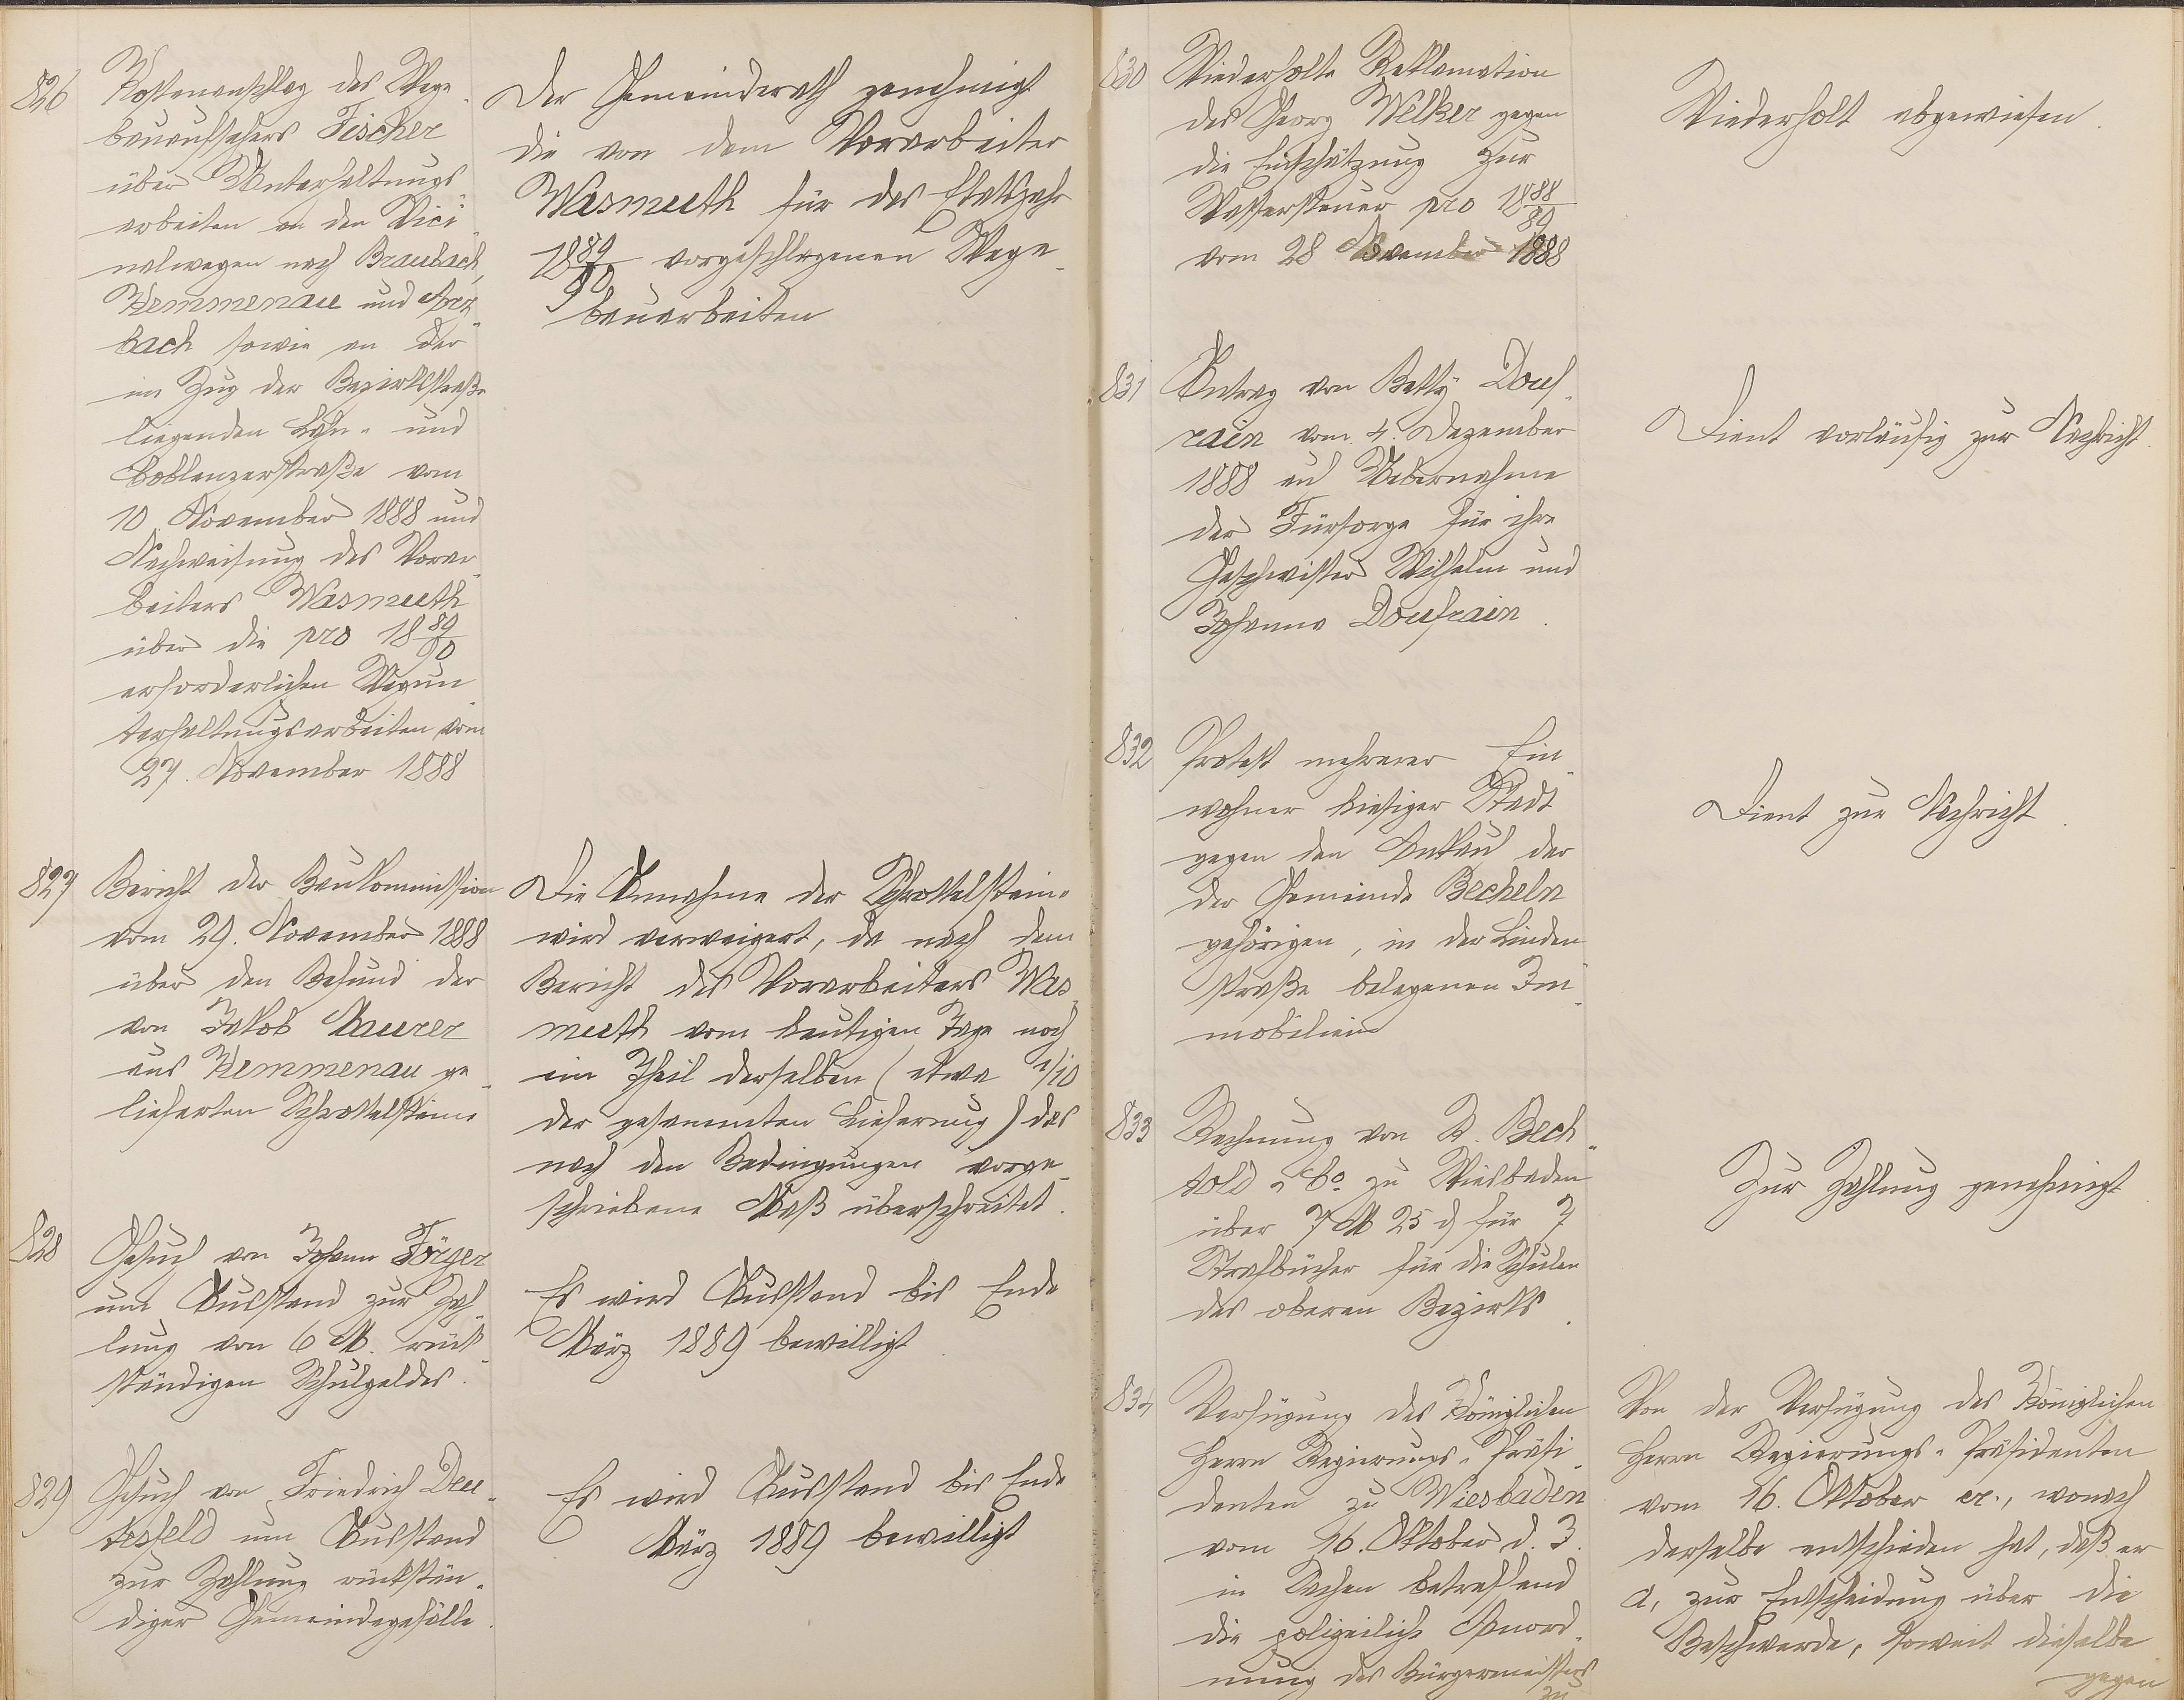 826
Kostenanschlag des Wege-
bauaufsehers Fischer
über Unterhaltungs-
arbeiten an den Vici-
nalwegen nach Braubach,
Kemmenau und Arz-
bach sowie an der
im Zug der Bezirksstraße
liegenden Lahn- und
Coblenzerstraße vom
10. November 1888 und
Nachweisung des Vorar-
beiters Wasmuth
über die pro 1889/90
erforderlichen Wegun-
terhaltungsarbeiten vom
27. November 1888
Der Gemeinderath genehmigt
die von dem Vorarbeiter
Wasmuth für das Etatsjahr
1889/90 vorgeschlagenen Wege-
bauarbeiten
827
Bericht der Baukommission
vom 29. November 1888
über den Befund der
von Jakob Maurer
aus Kemmenau ge-
lieferten Schrottelsteine
Die Annahme der Schrottelsteine
wird verweigert, da nach dem
Bericht des Vorarbeiters Was-
muth vom heutigen Tage noch
ein Theil derselben (etwa 1/10
der gesammten Lieferung) das
nach den Bedingungen vorge-
schriebene Maß überschreitet.
828
Gesuch von Johann Jörger
um Ausstand zur Zah-
lung von 6 M. rück-
ständigen Schulgeldes.
Es wird Ausstand bis Ende
März 1889 bewilligt.
829
Gesuch von Friedrich Deu-
tesfeld um Ausstand
zur Zahlung rückstän-
diger Gemeindegefälle.
Es wird Ausstand bis Ende
März 1889 bewilligt
830
Wiederholte Reklamation
des Georg Welker gegen
die Einschätzung zur
Wassersteuer pro 1888/89
vom 28 November 1888
Wiederholt abgewiesen.
831
Antrag von Betty Douf-
rain vom 4. Dezember
1888 auf Uebernahme
der Fürsorge für ihre
Geschwister Wilhelm und
Johanna Doufrain.
Dient vorläufig zur Nachricht.
832
Protest mehrerer Ein-
wohner hiesiger Stadt
gegen den Ankauf der
der Gemeinde Becheln
gehörigen, in der Linden-
straße belegenen Im-
mobilien
Dient zur Nachricht.
833
Rechnung von R. Bech-
told & Co. zu Wiesbaden
über 7 M 25 ₰ für 7
Strafbücher für die Schulen
des oberen Bezirks.
Zur Zahlung genehmigt
834
Verfügung des Königlichen
Herrn Regierungs-Präsi-
denten zu Wiesbaden
vom 16. Oktober d. J.
in Sachen betreffend
die polizeiliche Anord-
nung des Bürgermeisters
zu
Von der Verfügung des Königlichen
Herrn Regierungs-Präsidenten
vom 16. Oktober cr., wonach
derselbe entschieden hat, daß er
a, zur Entscheidung über die
Beschwerde, soweit dieselbe
gegen